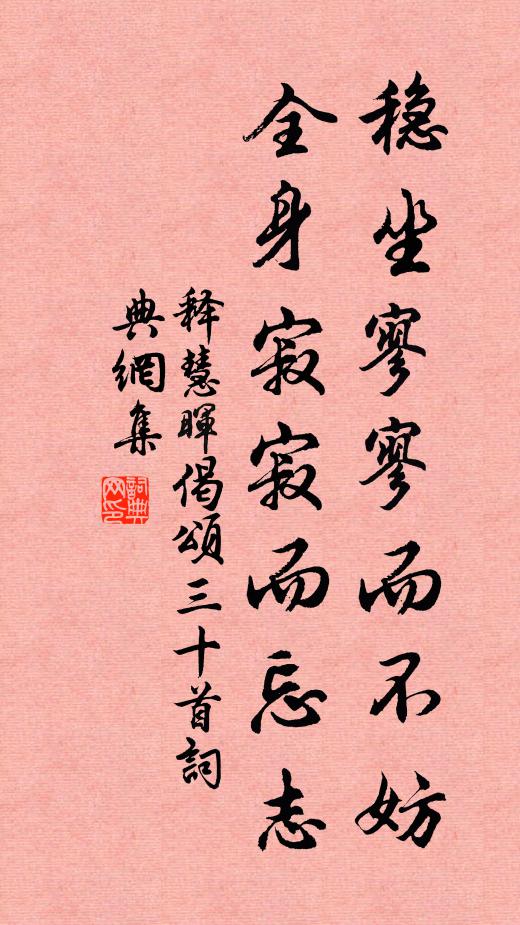 稳坐寥寥而不妨
全身寂寂而忘志
释慧暉偈頌三十首詞
典網集
詞典网印